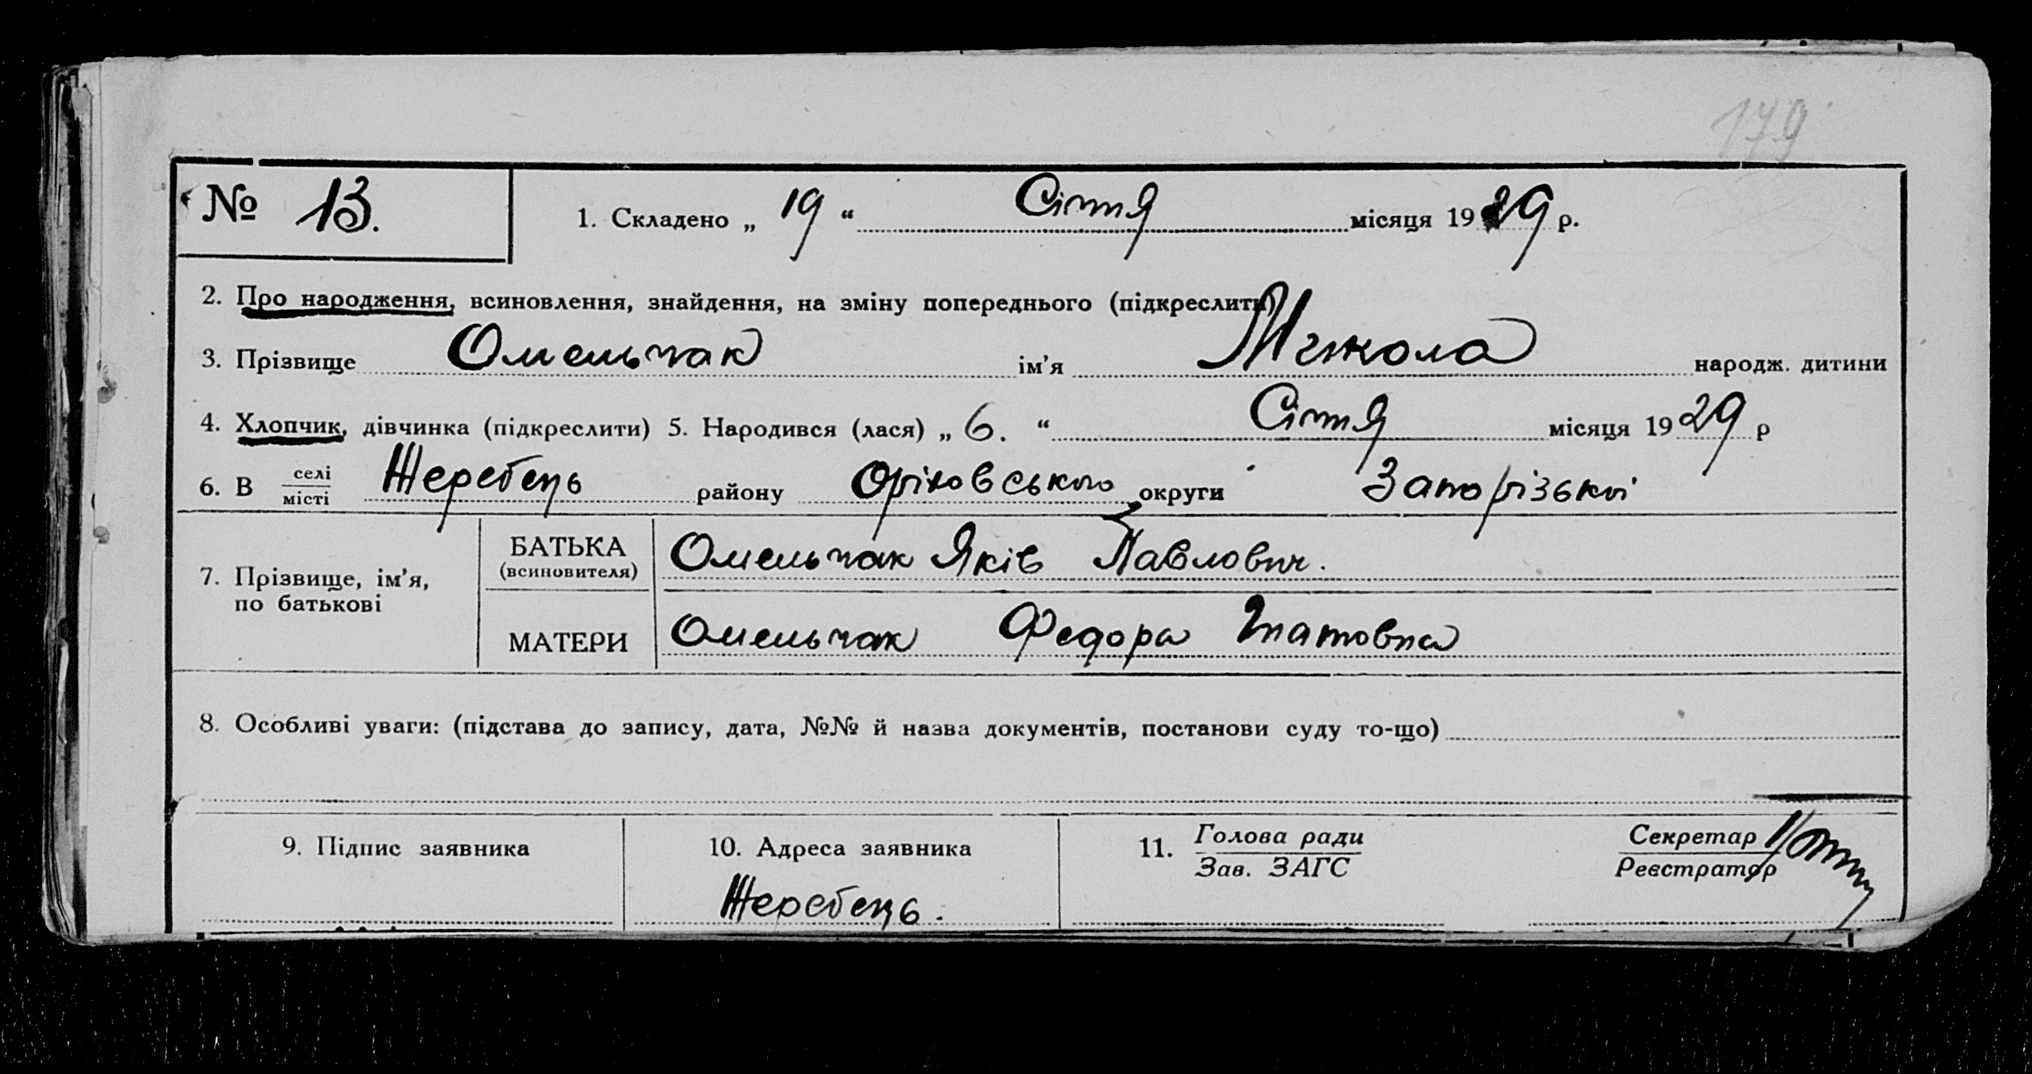 179
№ 13.
1. Складено „ 19 “ Січня місяця 1929 р.
2. Про народження, всиновлення, знайдення, на зміну попереднього (підкреслити)
3. Прізвище Омельчак ім’я Микола народж. дитини
4. Хлопчик, дівчинка (підкреслити) 5. Народився (лася) „ 6. “ Січня місяця 1929 р
6. В селі/місті Жеребець району Оріховського округи Запорізької
7. Прізвище, ім’я, по батькові
БАТЬКА (всиновителя) Омельчак Яків Павлович.
МАТЕРИ Омельчак Федора Гнатовна
8. Особливі уваги: (підстава до запису, дата, №№ й назва документів, постанови суду то-що)
9. Підпис заявника
10. Адреса заявника
Жеребець.
11. Голова ради/Зав. ЗАГС
Секретар/Реєстратор